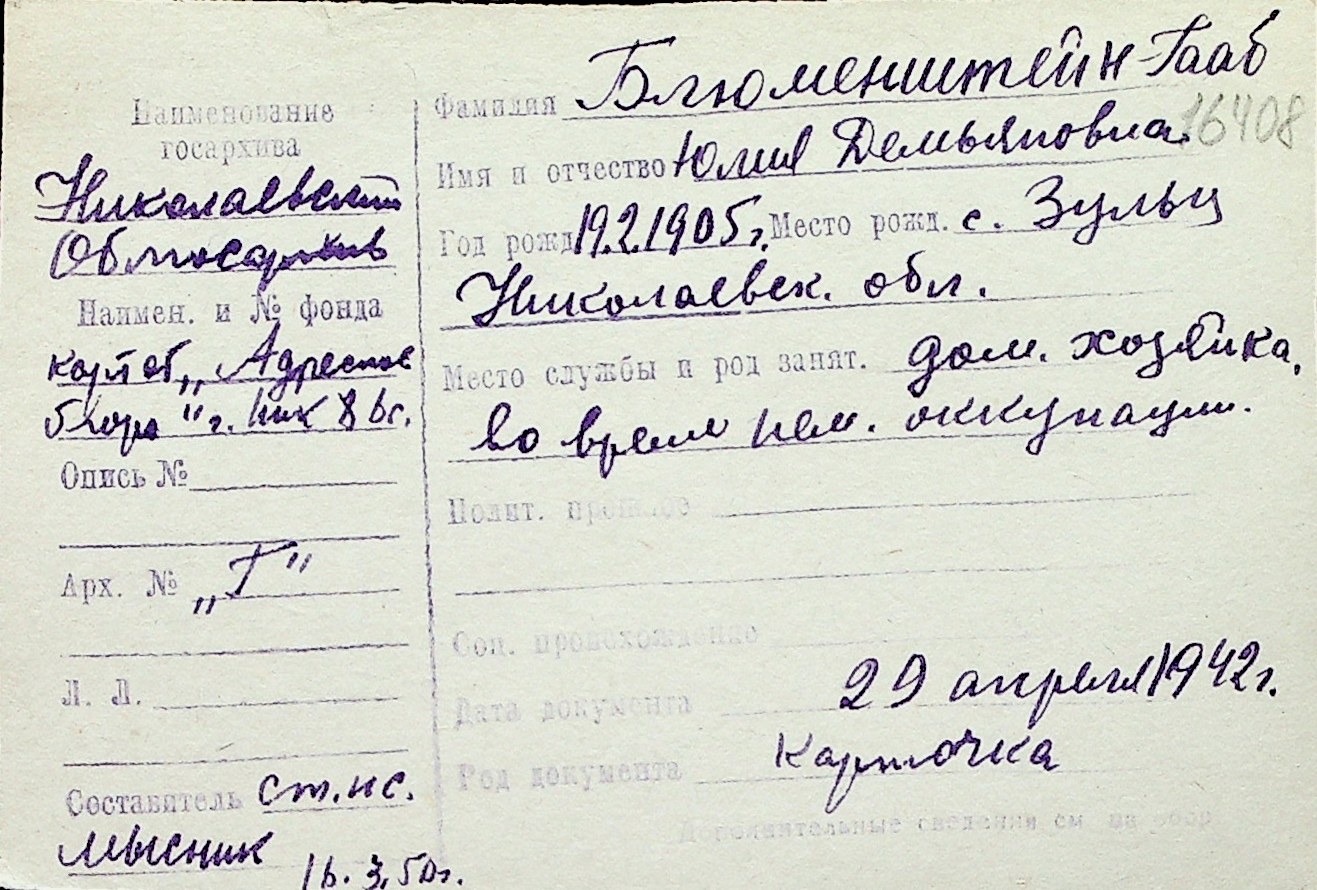 Наименование
госархива
Николаевский
Облгосархив
Наимен. и № фонда
картот. „Адресное
бюро" г. Ник
Опись №
Арх. № „Г"
Л. Л.
Составитель ст. нс.
Мысник
16.3.50г.
Фамилия Блюменштейн-Гааб
16408
Имя и отчество Юлия Демьяновна
Год рожд 19.2.1905г. Место рожд. с. Зульц
Николаевск. обл.
Место службы и род занят. дом. хозяйка,
во время нем. оккупации.
Полит. прошлое
Соц. происхождение
Дата документа 29 апреля 1942г.
Род документа Карточка
Дополнительные сведения см на обор